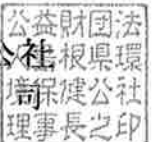 公益財団法
公社
根県環
境保健公社
司
理事長之印